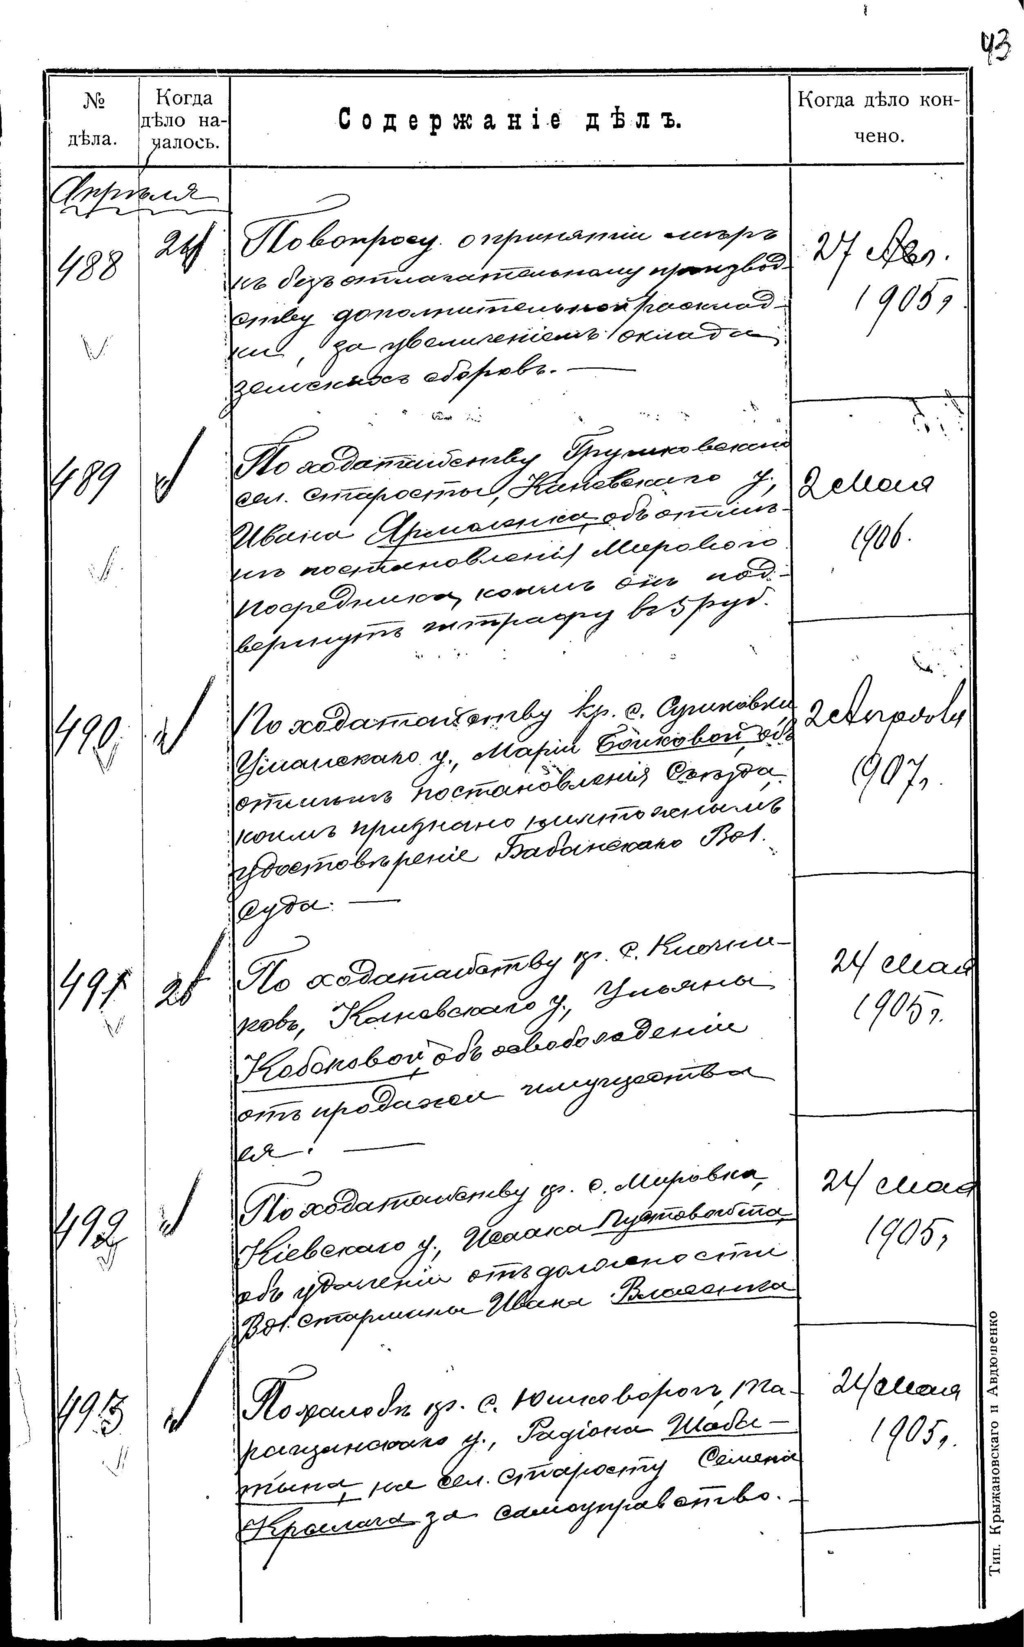 43
№ дѣла.
Когда дѣло началось.
Содержаніе дѣлъ.
Когда дѣло кончено.
Апрѣля
488
По вопросу о принятіи мѣръ
27 Авг.
къ безъотлагательному производ-
1905 г.
ству дополнительной расклад-
ки, за увеличеніемъ оклада
земскихъ сборовъ. —
489
"
По ходатайству Грушковскаго
2 Мая
сел. старосты, Каневскаго у.,
1906.
Ивана Ярмоленка, объ отмѣ-
нѣ постановленія Мирового
Посредника, коимъ онъ под-
вергнутъ штрафу въ 5 руб.
490
"
По ходатайству кр. с. Сушковки
2 Апрѣля
Уманскаго у., Маріи Бойковой, объ
1907 г.
отмѣнѣ постановленія Съѣзда,
коимъ признано ничтожнымъ
удостовѣреніе Бабанскаго Вол.
Суда. —
491
26
По ходатайству кр. с. Ключни-
24 Мая
ковъ, Каневскаго у., Ульяны
1905 г.
Кобаковой, объ освобожденіи
отъ продажи имущества
ея. —
492
"
По ходатайству кр. с. Мировки,
24 Мая
Кіевскаго у., Исаака Пустовойта,
1905 г
объ удаленіи отъ должности
Вол. старшины Ивана Власенка
493
"
По жалобѣ кр. с. Юшковорогъ, Та-
24 Мая
ращанскаго у., Радіона Шаба-
1905 г.
тына, на сел. старосту Семена
Кралача за самоуправство. —
Тип. Крыжановскаго и Авдюшенко